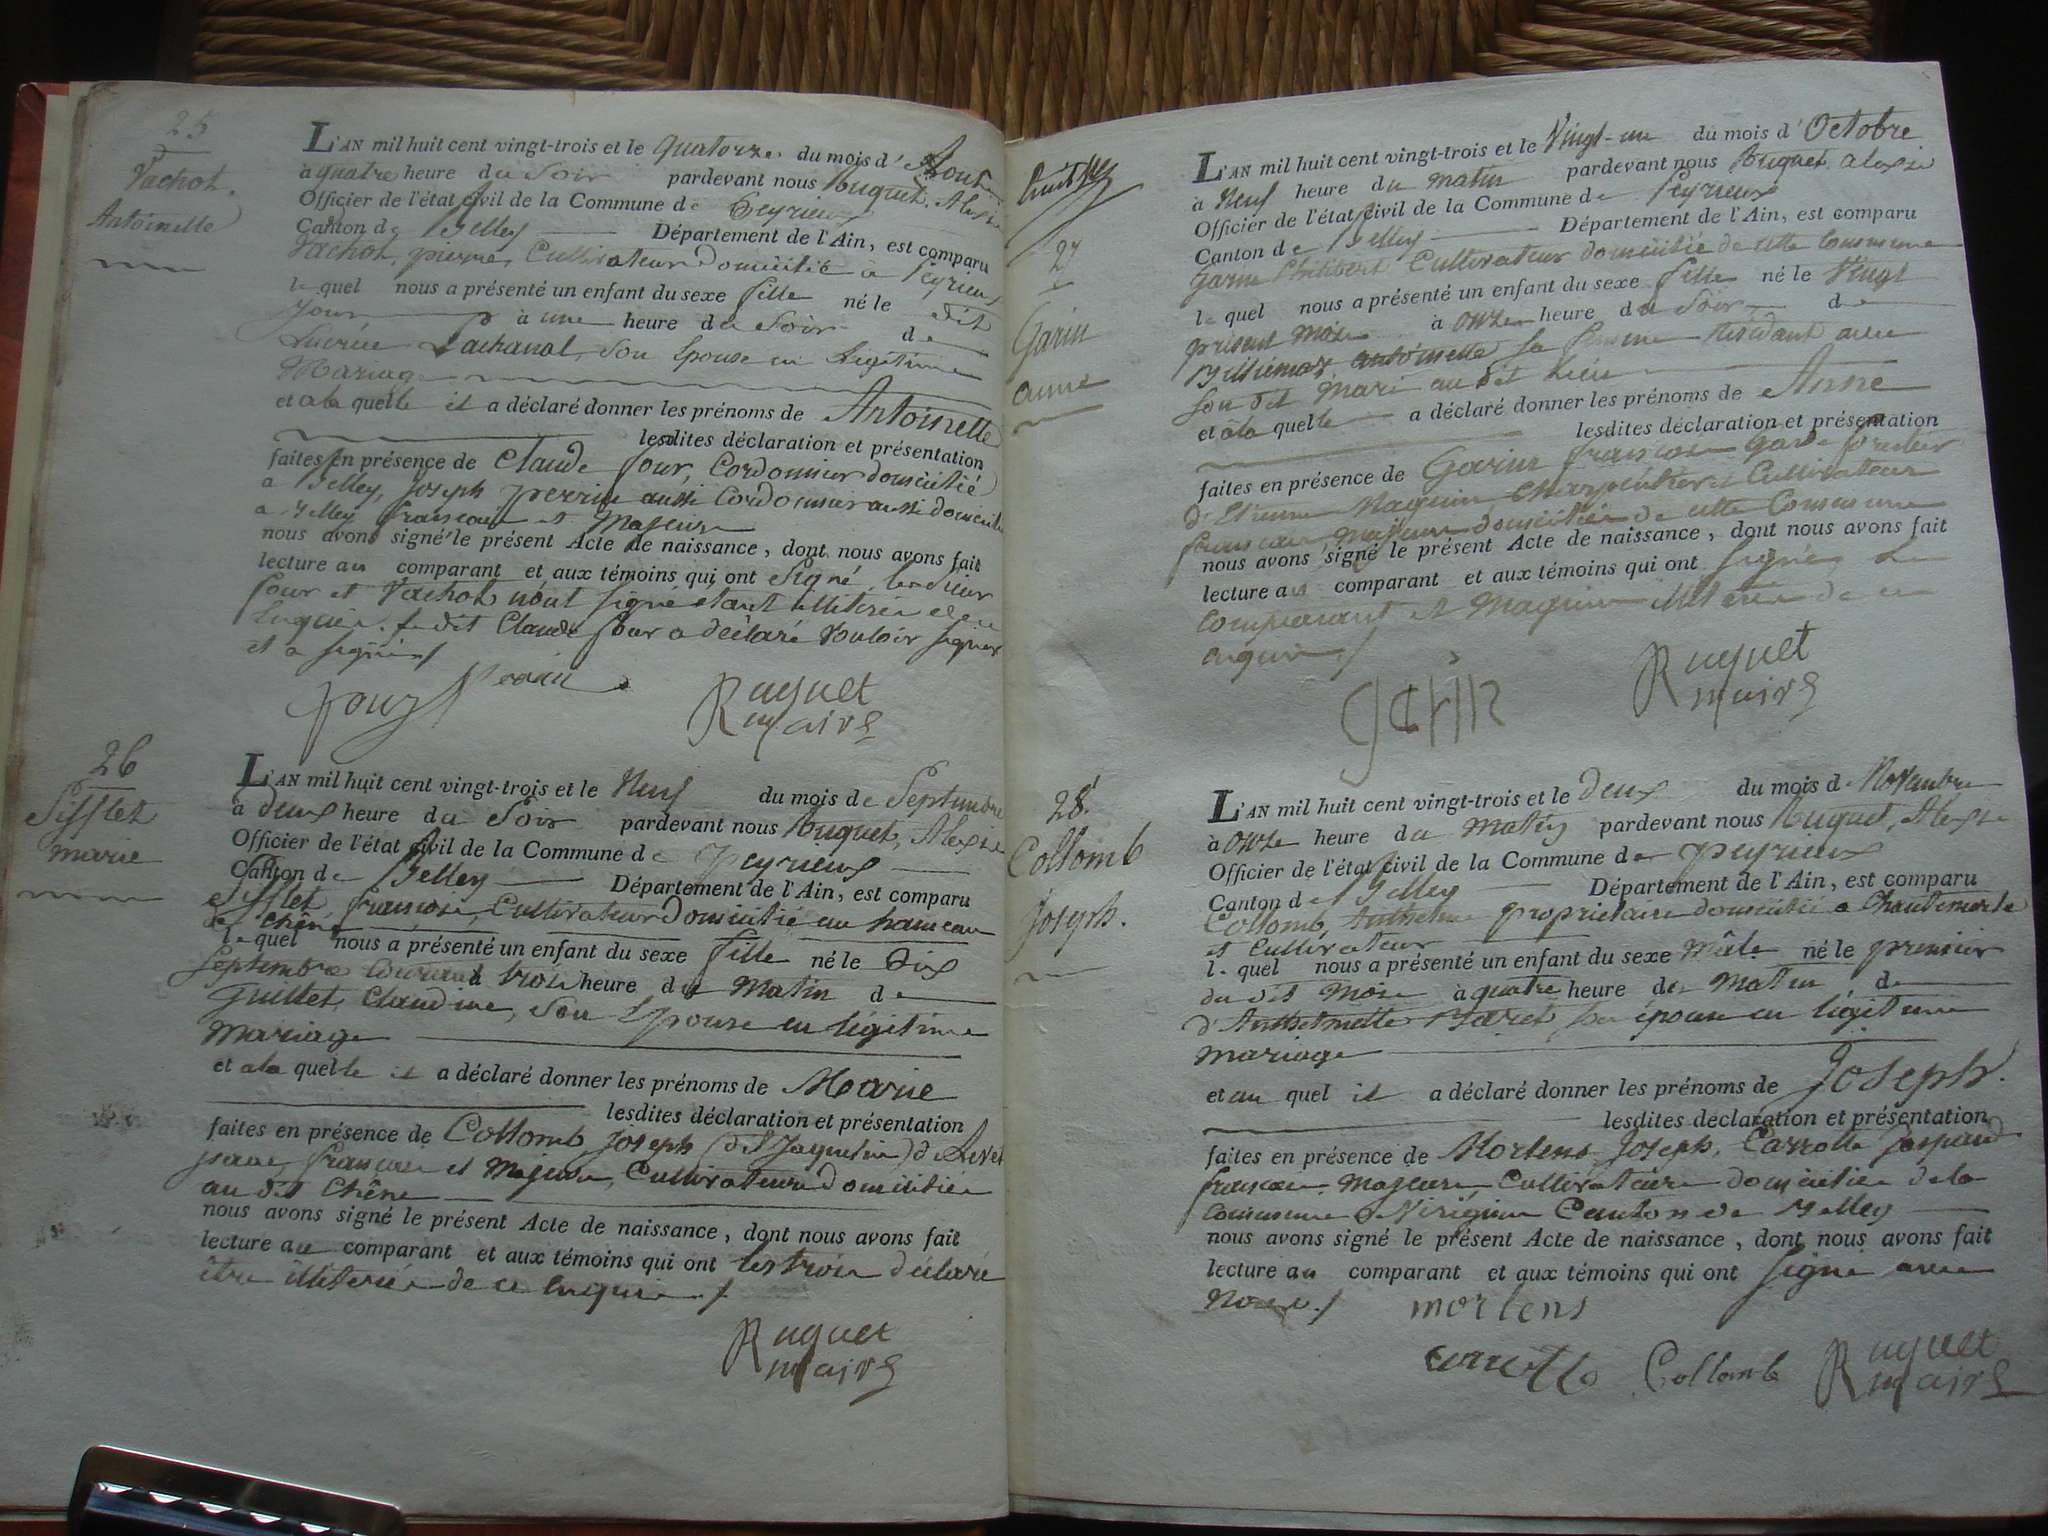 25
Vachot.
Antoinette
L'AN mil huit cent vingt-trois et le quatorze du mois d'Aout
à quatre heure du Soir pardevant nous Ruguet, Alexis
Officier de l'état civil de la Commune de Peyrieux
Canton de Belley Département de l'Ain, est comparu
Vachot, pierre, Cultivateur domicilié à Peyrieux
lequel nous a présenté un enfant du sexe fille né le dit
Jour à une heure du Soir de
Lachanal, Son Epouse en Légitime
Mariage
et ala quelle il a déclaré donner les prénoms de Antoinette
lesdites déclaration et présentation
faites en présence de Claude Jour, Cordonnier domicilié
a Belley, Joseph perrin aussi Cordonnier aussi domicilié
a Belley francais et Majeurs
nous avons signé le présent Acte de naissance, dont nous avons fait
lecture au comparant et aux témoins qui ont Signé, le
Jour et Vachot nont signé etant illitérés de ce
Enquis. le dit Claude Jour a déclaré vouloir signer
et a signé
Ruguet
maire
26
Sifflet
marie
L'AN mil huit cent vingt-trois et le Neuf du mois de Septembre
à deux heure du Soir pardevant nous Ruguet, Alexis
Officier de l'état civil de la Commune de Peyrieux
Canton de Belley Département de l'Ain, est comparu
Sifflet, françois, Cultivateur Domicilié au hameau
de Chêne
lequel nous a présenté un enfant du sexe fille né le Dix
Septembre Courant trois heure du Matin de
Guillet, Claudine, Son Epouse en légitime
Mariage
et ala quelle il a déclaré donner les prénoms de Marie
lesdites déclaration et présentation
faites en présence de Collomb Joseph (dit Jaquetin)
francais et Majeurs, Cultivateurs domiciliés
au dit Chêne
nous avons signé le présent Acte de naissance, dont nous avons fait
lecture au comparant et aux témoins qui ont les trois déclaré
être illiterés de ce Enquis
Ruguet
maire
27
Garin
anne
L'AN mil huit cent vingt-trois et le Vingt-un du mois d'Octobre
à Neuf heure du matin pardevant nous Ruguet, alexis
Officier de l'état civil de la Commune de Peyrieux
Canton de Belley Département de l'Ain, est comparu
Garin Philibert Cultivateur domicilié de cette Commune
lequel nous a présenté un enfant du sexe fille né le Vingt
présent Mois à onze heure du Soir de
Billiémaz, antoinette sa femme résidant avec
son dit Mari au dit lieu
et ala quelle a déclaré donner les prénoms de Anne
lesdites déclaration et présentation
faites en présence de Garin francois garde forestier
d'Etienne Maguin Charpentier et Cultivateur
francais majeurs domiciliés de cette Commune
nous avons signé le présent Acte de naissance, dont nous avons fait
lecture au comparant et aux témoins qui ont signé le
Comparant et Maguin de ce
enquis
Ruguet
maire
28.
Collomb
Joseph.
L'AN mil huit cent vingt-trois et le deux du mois de Novembre
à onze heure du matin pardevant nous Ruguet, Alexis
Officier de l'état civil de la Commune de Peyrieux
Canton de Belley Département de l'Ain, est comparu
Collomb, Anthelme propriétaire domicilié a Chantemerle
et Cultivateur
lequel nous a présenté un enfant du sexe Mâle né le premier
du dit Mois à quatre heure de Matin de
d'Anthelmette Baret son épouse en légitime
mariage
et au quel il a déclaré donner les prénoms de Joseph.
lesdites déclaration et présentation
faites en présence de Mortens Joseph, Carrotte Gaspard
francais, Majeurs, Cultivateurs domiciliés de la
Commune de Virignin Canton de Belley
nous avons signé le présent Acte de naissance, dont nous avons fait
lecture au comparant et aux témoins qui ont signé avec
Nous
mortens
Collomb
Ruguet
maire